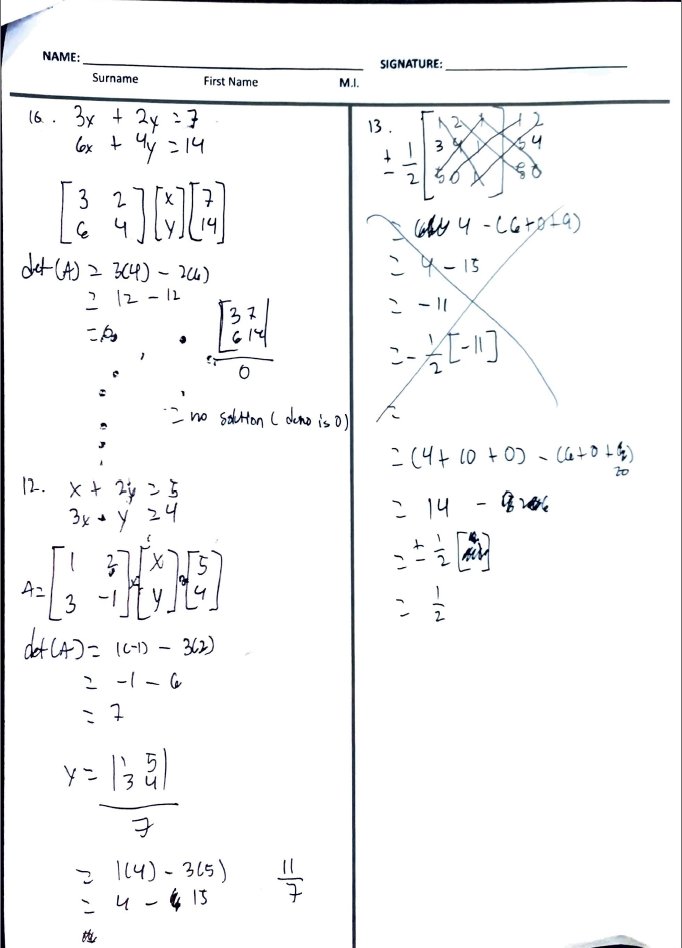 NAME:
SIGNATURE:
Surname First Name M.I.
16. 3x + 2y = 7
6x + 4y = 14
[3 2
6 4] [x
y] [7
14]
det(A) = 3(4) - 2(6)
= 12 - 12
= 0
[3 7
6 14]
0
= no solution (deno is 0)
12. x + 2y = 5
3x - y = 4
A = [1 2
3 -1] [x
y] = [5
4]
det(A) = 1(-1) - 3(2)
= -1 - 6
= 7
y = |1 5
3 4|
7
= 1(4) - 3(5)
= 4 - 15
11
7
13.
± 1/2 [1 2 1
3 4 1
5 0 1] 1 2
3 4
5 0
4 - (6+0+9)
= 4 - 15
= -11
= - 1/2 [-11]
=
= (4 + 10 + 0) - (6 + 0 +
20
= 14 -
= ± 1/2
= 1/2